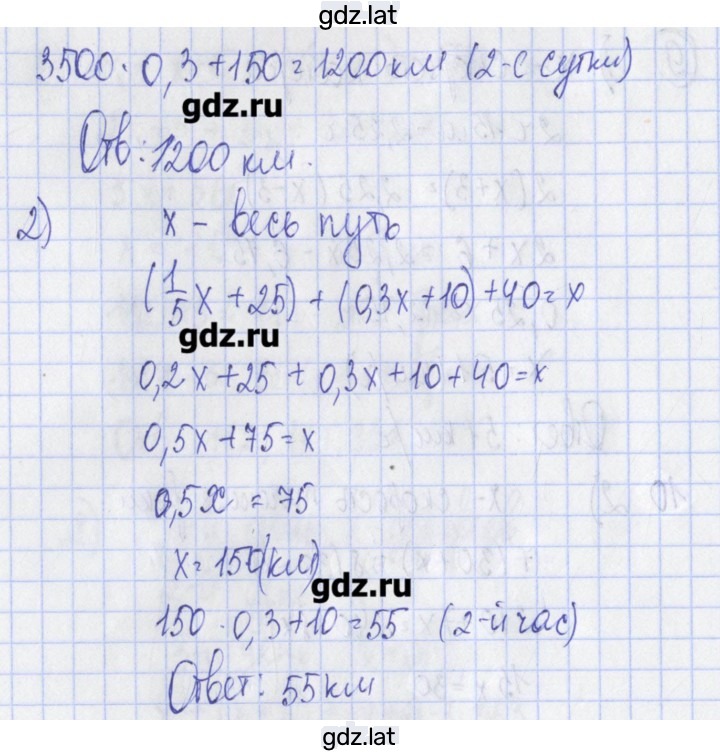 gdz.lat
3500 · 0,3 + 150 = 1200 км (2-е сутки)
gdz.ru
Отв: 1200 км.
2) x - весь путь
(1/5 x + 25) + (0,3x + 10) + 40 = x
gdz.ru
0,2x + 25 + 0,3x + 10 + 40 = x
0,5x + 75 = x
0,5x = 75
x = 150 (км)
gdz.ru
150 · 0,3 + 10 = 55 (2-й час)
Ответ: 55 км
gdz.lat